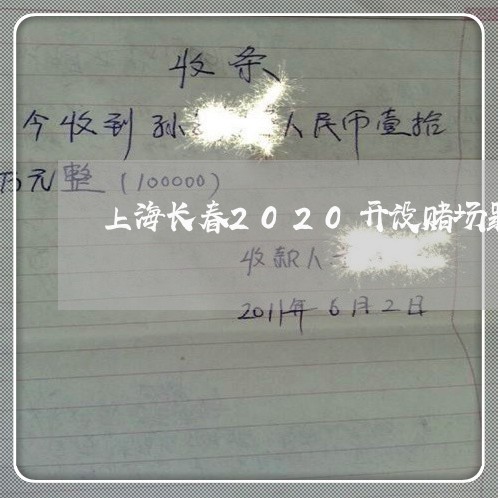 收条
今收到孙 人民币壹拾
万元整(100000)
上海长春2020开设赌场
收款人
2011年6月2日